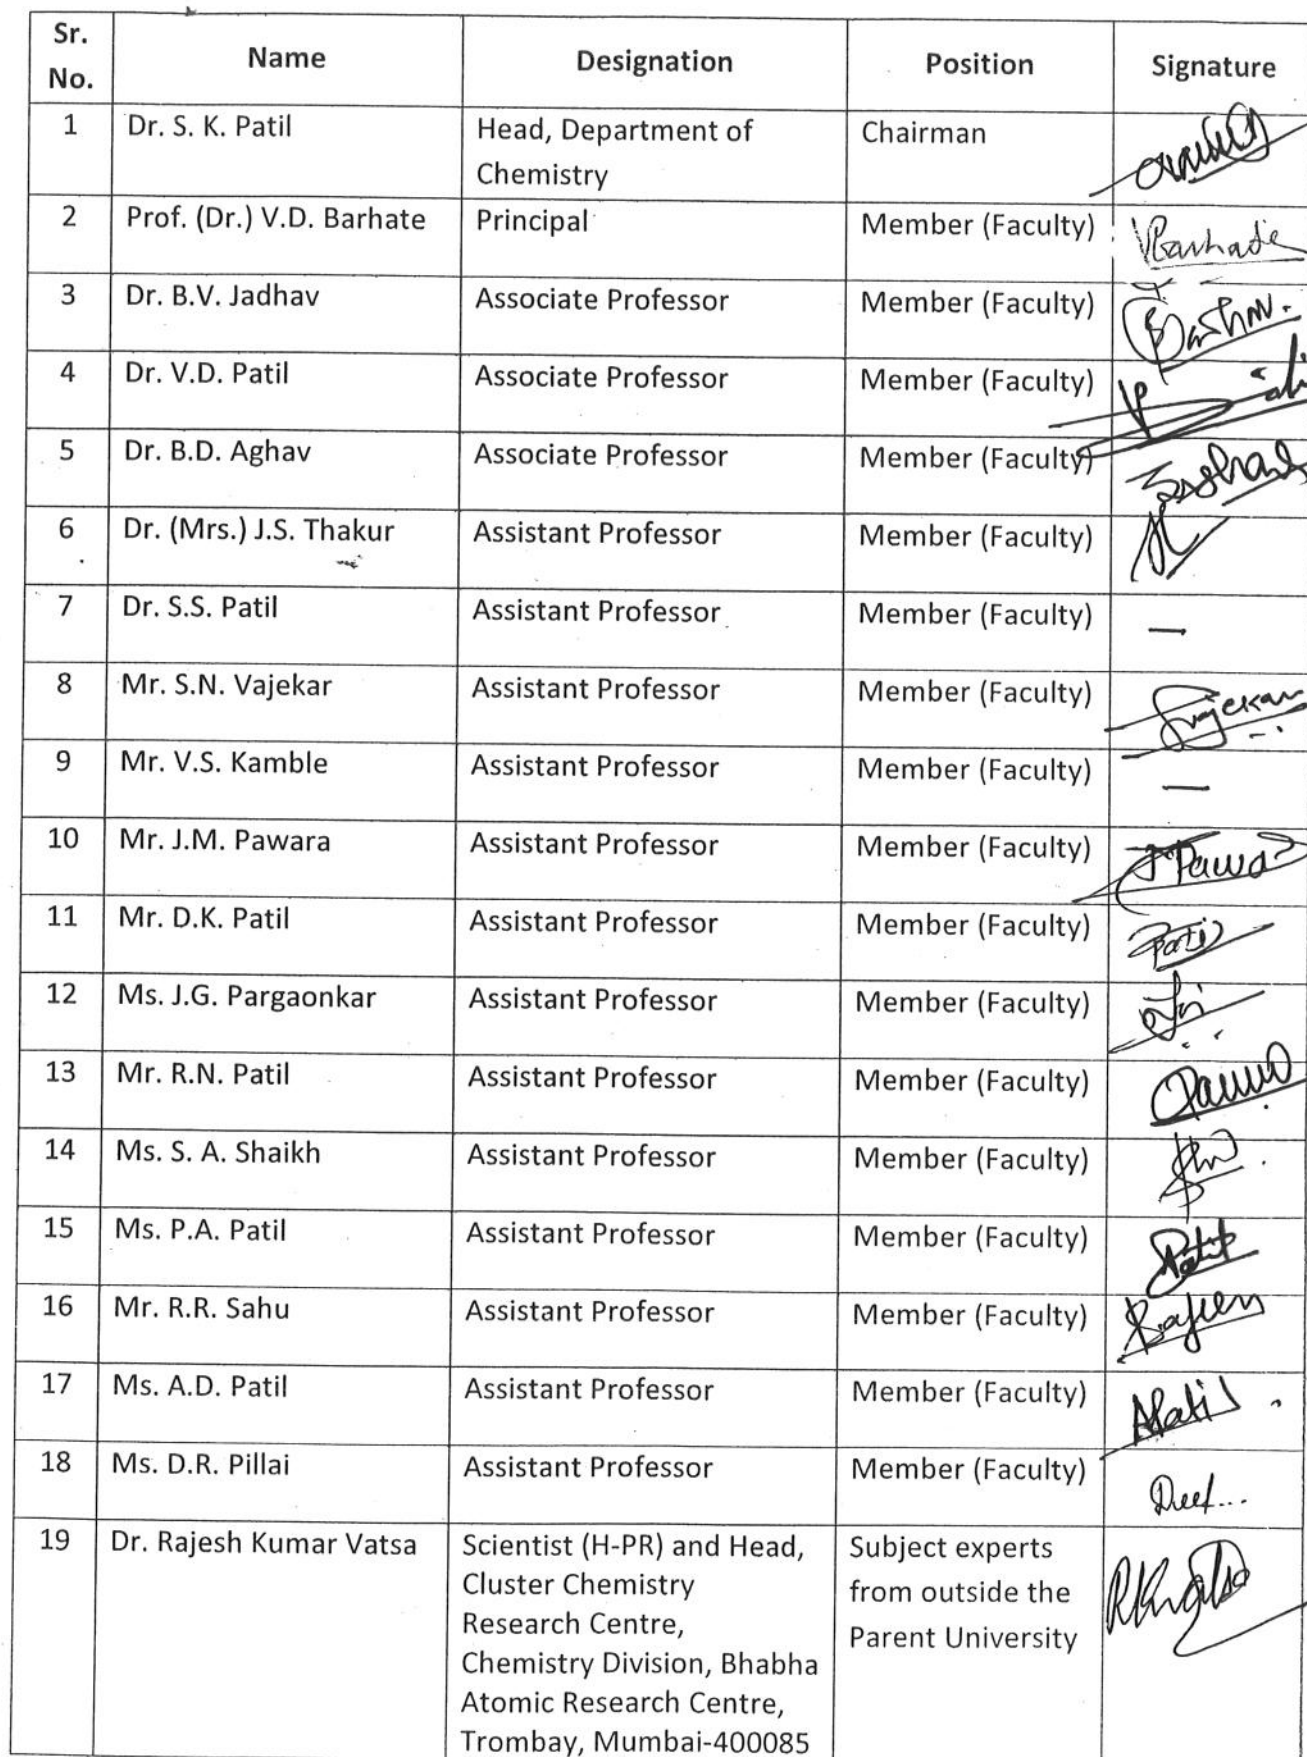 Sr. No. Name Designation Position Signature
1 Dr. S. K. Patil Head, Department of Chemistry Chairman
2 Prof. (Dr.) V.D. Barhate Principal Member (Faculty) VBarhate
3 Dr. B.V. Jadhav Associate Professor Member (Faculty)
4 Dr. V.D. Patil Associate Professor Member (Faculty)
5 Dr. B.D. Aghav Associate Professor Member (Faculty)
6 Dr. (Mrs.) J.S. Thakur Assistant Professor Member (Faculty)
7 Dr. S.S. Patil Assistant Professor Member (Faculty) —
8 Mr. S.N. Vajekar Assistant Professor Member (Faculty)
9 Mr. V.S. Kamble Assistant Professor Member (Faculty) —
10 Mr. J.M. Pawara Assistant Professor Member (Faculty)
11 Mr. D.K. Patil Assistant Professor Member (Faculty)
12 Ms. J.G. Pargaonkar Assistant Professor Member (Faculty)
13 Mr. R.N. Patil Assistant Professor Member (Faculty)
14 Ms. S. A. Shaikh Assistant Professor Member (Faculty)
15 Ms. P.A. Patil Assistant Professor Member (Faculty)
16 Mr. R.R. Sahu Assistant Professor Member (Faculty)
17 Ms. A.D. Patil Assistant Professor Member (Faculty) APatil
18 Ms. D.R. Pillai Assistant Professor Member (Faculty)
19 Dr. Rajesh Kumar Vatsa Scientist (H-PR) and Head, Subject experts
Cluster Chemistry from outside the
Research Centre, Parent University
Chemistry Division, Bhabha
Atomic Research Centre,
Trombay, Mumbai-400085